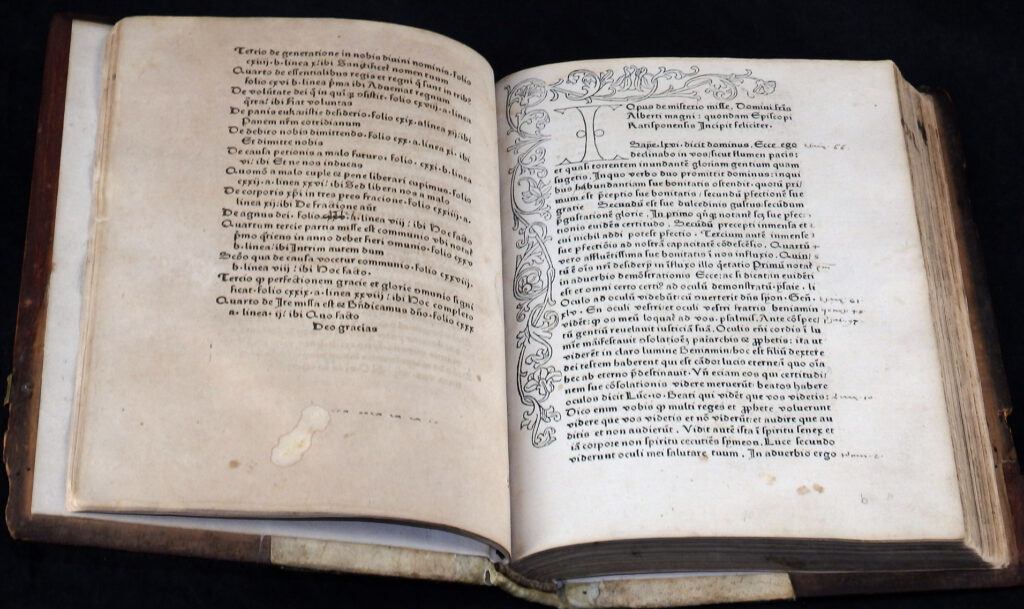 Tercio de generatione in nobis diuini nominis. folio
cxiiij. b. linea x. ibi Sanctificet nomen tuum
Quarto de essentialibus regis et regni q̃ sunt in tribꝰ
folio cxvi b. linea p̃ma ibi Adueniat regnum
De volũtate dei q̃ in quiq̃ ↄsistit. folio cxvij. a. linea
ibi fiat voluntas
De panis eukaristie desiderio. folio cxix. a linea xij. ibi
Panem nr̃m cottidianum
De debito nobis dimittendo. folio cxx. a. linea xi. ibi
Et dimitte nobis
De causa petionis a malo futuro. folio. cxxi. b. linea
vi. ibi Et ne nos inducas
Quomõ a malo culpe & pene liberari cupimus. folio
cxxij. a. linea xxvi. ibi Sed libera nos a malo
De corporis xp̃i in tres pres fractione. folio cxxiij. a.
linea xij. ibi De fractione aũt
De agnus dei. folio a. linea viij. ibi Hoc facto
Quartum tercie partis misse est communio vbi notat̃
b. linea. ibi Interim autem dum
Scd̃o qua de causa vocetur communio. folio cxxviij.
b. linea viij. ibi Hoc facto.
Tercio ꝙ perfectionem gracie et glorie ↄmunio signi
ficat. folio cxxix. a. linea xxviij. ibi Hoc completo
Quarto de Ite missa est & Bñdicamus dño. folio cxxx
a. linea. ij. ibi Quo facto
Deo gracias
Opus de misterio misse. Domini sc̃i
Alberti magni: quondam Episcopi
Ratisponensis Incipit feliciter.
I Saie. lxvi. dicit dominus. Ecce ego
declinabo in vos sicut flumen pacis:
et quasi torrentem inundantẽ gloriam gentium quam
sugetis. In quo verbo duo promittit dominus: inqui
bus habundantiam sue bonitatis ostendit. quorũ pri
mum. est ꝑceptio sue bonitatis secundũ ꝑfectionẽ sue
gratie Secundũ est sue dulcedinis gustus secundum
p̃gustationẽ glorie. In primo
nonis euidẽs certitudo. Secũdũ precepti inmensa et
cui nichil addi potest ꝑfectio. Tercium autẽ inmense
sue ꝑfectiõis ad nostrã capacitatẽ cõdescẽsio. Quartũ
vero affluẽtissima sue bonitatis ĩ nos influxio. Quin
Primũ notat̃
in aduerbio demõstrationis Ecce: ac si dicat: in euidẽti
est et omni certo certiꝰ ad oculũ demonstratũ. psaie. li
Oculo ad oculũ videbũt: cũ ↄuerterit dñs syon. Geñ.
xlv. En oculi vestri et oculi vestri fratris beniamin
vidẽt: ꝙ os meũ loquat̃ ad vos. psalmꝰ. Ante cõspec
tũ gentiũ reuelauit iusticiã suã. Oculis eñi cordis ĩ lu
mie mãifestauit ↄsolatiões: patriarchis & ꝓphetis: ita ut
viderẽt in claro lumine Beniamin: hoc est filiũ dextere
dei testem haberent qui est cãdor lucis eterne: ĩ quo oĩa
hec ab eterno p̃destinauit. Vñ eciam eos qui certitudi
nem sue cõsolationis videre meruerũt beatos habere
oculos dicit Luc. 10. Beati qui vidẽt que vos videtis:
Dico enim vobis ꝙ multi reges et ꝓphete voluerunt
videre que vos videtis et nõ viderũt: et audire que au
ditis et non audierũt. Vidit autẽ ista ĩ spiritu senex et
iã corpore non spiritu cecutiẽs symeon. Luce secundo
viderunt oculi mei salutare tuum. In aduerbio ergo